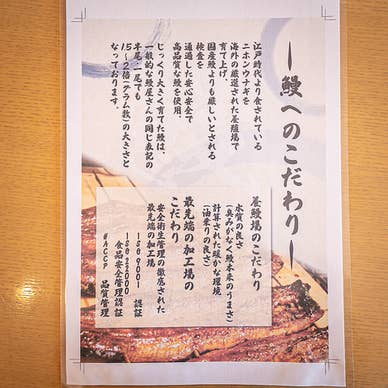 ― 鰻へのこだわり ―
江戸時代より食されている
ニホンウナギを
海外の厳選された養殖場で
育て上げ、
国産鰻よりも厳しいとされる
検査を
通過した安心安全で
高品質な鰻を使用。
じっくり大きく育てた鰻は、
一般的な鰻屋さんの同じ表記の
半尾、一尾でも
1.5～2倍(グラム数)の大きさと
なっております。
養鰻場のこだわり
水質の良さ
(臭みがなく鰻本来のうまさ)
計算された暖かな環境
(油乗りの良さ)
最先端の加工場の
こだわり
安全衛生管理の徹底された
最先端の加工場
ISO 9001 認証
ISO 22000
食品安全管理認証
HACCP 品質管理